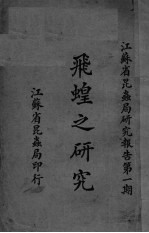 江蘇省昆蟲局研究報告第一期
飛蝗之研究
江蘇省昆蟲局印行